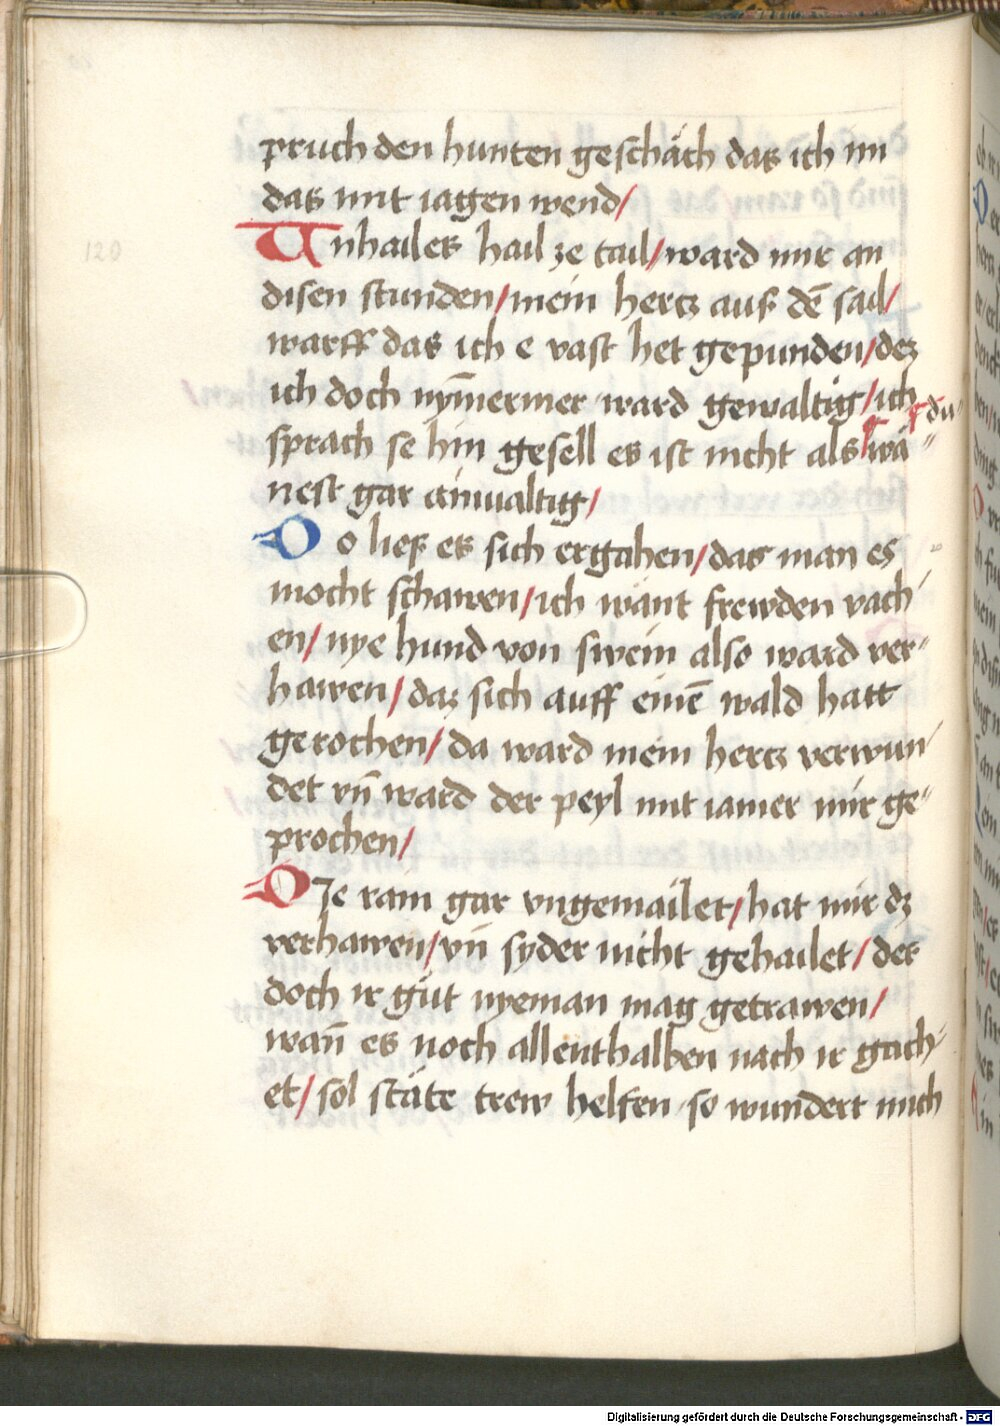 pruch den hunten geschäch das ich im
das mit iagen wend/
120
Unhailes hail ze tail/ ward mir an
disen stunden/ mein hertz auß dē sail/
warff das ich e vast het gepunden/ dez
ich doch nym̄ermer ward gewaltig/ ich
du
sprach se hin gesell es ist nicht als wä"
nest gar ainualtig/
Do ließ es sich ergahen/ das man es
mocht schawen/ ich wänt frewden vach
en/ nye hund von swein also ward ver"
hawen/ daz sich auff einē wald hatt
gerochen/ da ward mein hertz verwun
det vn̄ ward der peyl mit iamer mir ge"
prochen/
DIe ram gar vngemailet/ hat mir dz
verhawen/ vn̄ syder nicht gehailet/ der
doch ir güt nyeman mag getrawen/
wan̄ es noch allenthalben nach ir gach"
et/ sol stäte trew helfen so wundert mich
Digitalisierung gefördert durch die Deutsche Forschungsgemeinschaft - DFG